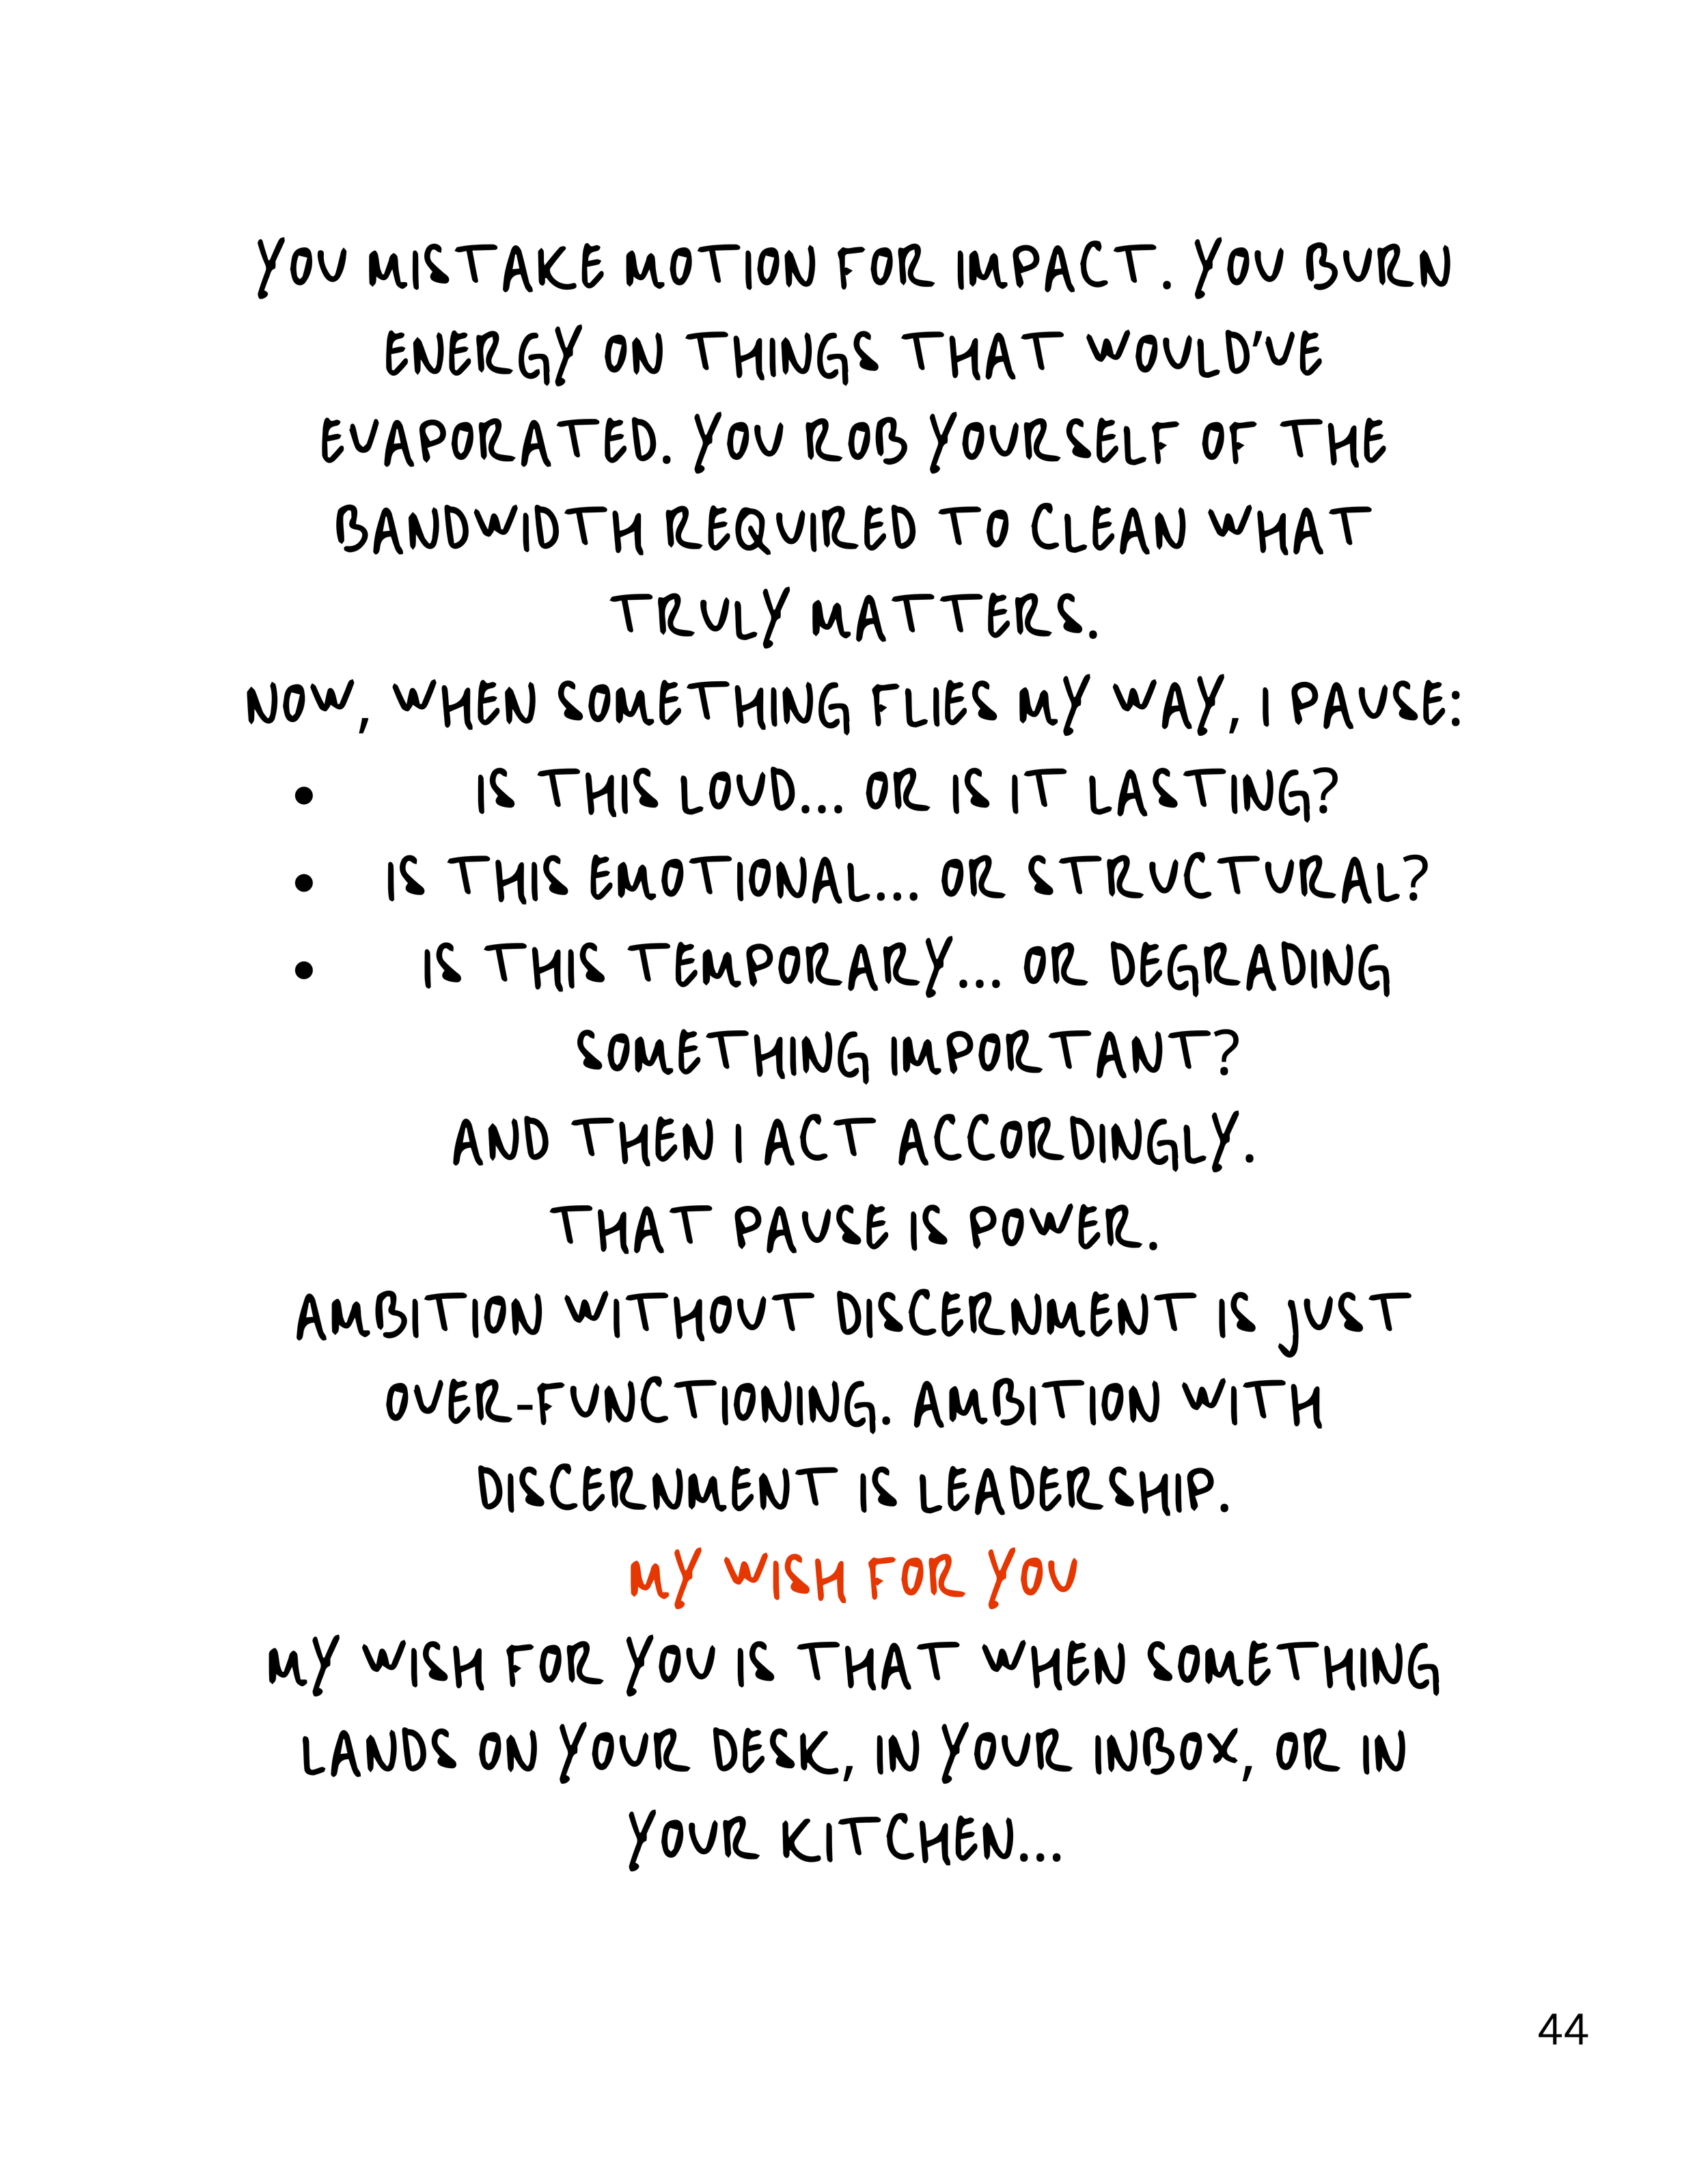 YOU MISTAKE MOTION FOR IMPACT. YOU BURN
ENERGY ON THINGS THAT WOULD'VE
EVAPORATED. YOU ROB YOURSELF OF THE
BANDWIDTH REQUIRED TO CLEAN WHAT
TRULY MATTERS.
NOW, WHEN SOMETHING FLIES MY WAY, I PAUSE:
• IS THIS LOUD... OR IS IT LASTING?
• IS THIS EMOTIONAL... OR STRUCTURAL?
• IS THIS TEMPORARY... OR DEGRADING
SOMETHING IMPORTANT?
AND THEN I ACT ACCORDINGLY.
THAT PAUSE IS POWER.
AMBITION WITHOUT DISCERNMENT IS JUST
OVER-FUNCTIONING. AMBITION WITH
DISCERNMENT IS LEADERSHIP.
MY WISH FOR YOU
MY WISH FOR YOU IS THAT WHEN SOMETHING
LANDS ON YOUR DESK, IN YOUR INBOX, OR IN
YOUR KITCHEN...
44